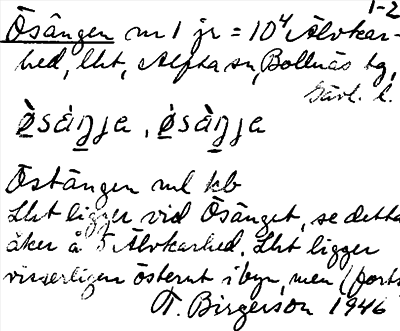 1-2
Ösängen m 1 jr = 10⁴ Älvkar-
hed, lht, Alfta sn, Bollnäs tg,
Gävl. l.
Östängen ml kb
Lht ligger vid Ösänget, se detta
åker å 5 Älvkarhed. Lht ligger
visserligen österut i byn, men (forts
T. Birgerson 1946